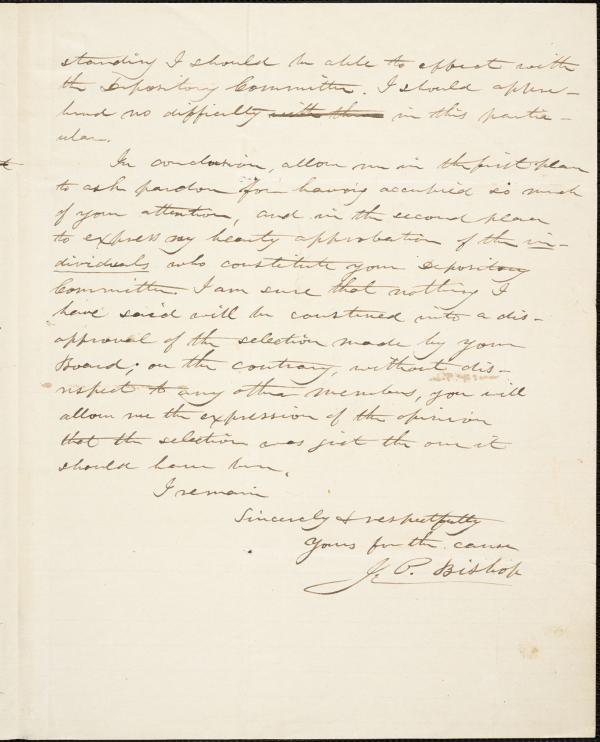 standing I should be able to effect with
the Depository Committee. I should appre-
hend no difficulty with them in this partic-
ular.
In conclusion, allow me in the first place
to ask pardon for having occupied so much
of your attention, and in the second place
to express my hearty approbation of the in-
dividuals who constitute your Depository
Committee. I am sure that nothing I
have said will be construed into a dis-
approval of the selection made by your
Board; on the contrary, without dis-
respect to any other members, you will
allow me the expression of the opinion
that the selection was just the one it
should have been.
I remain
Sincerely & respectfully
Yours for the cause
J. P. Bishop